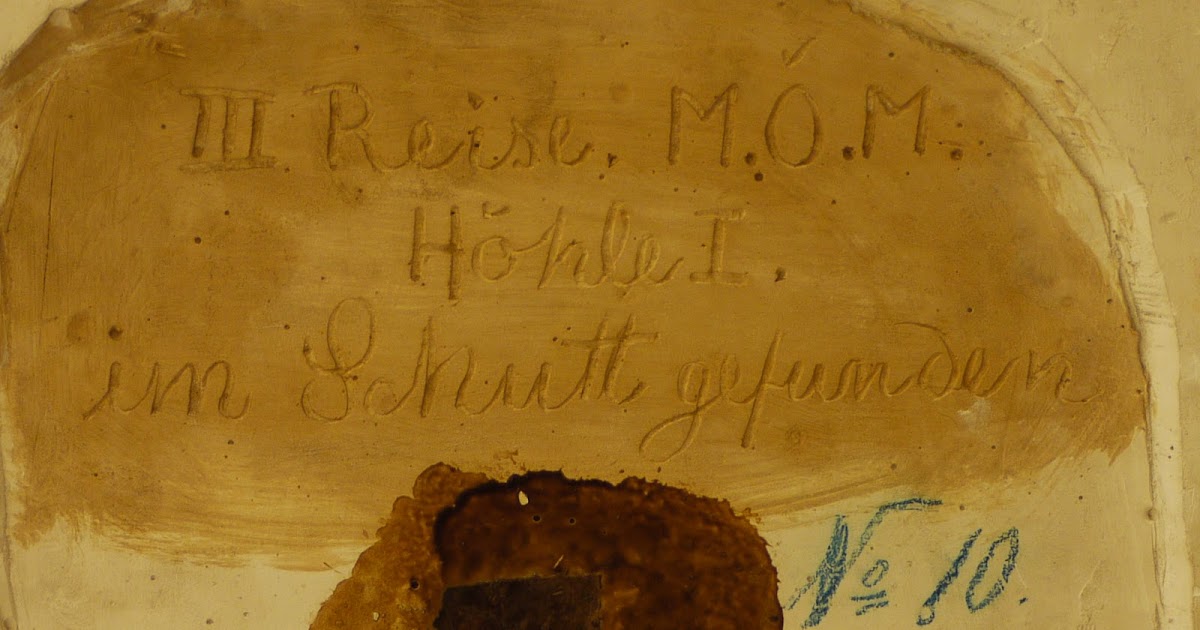 III Reise. M.Ó.M.
Höhle I.
im Schutt gefunden
No 10.